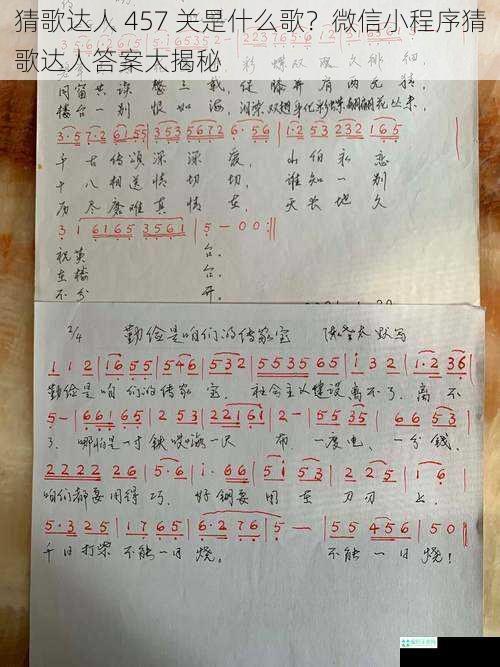 猜歌达人 457 关是什么歌？微信小程序猜
歌达人答案大揭秘
彩蝶双双久徘徊
同窗共读整三载，促膝并肩两无猜，
楼台一别恨如海，
3·5 7 2 | 6 1 5 5 | 3 5 3 5 6 7 2 | 6· 5 6 | 1·2 5 3 2 3 2 1 6 5 |
千古传颂深深爱，山伯永恋
十八相送情切切，谁知一别
历尽磨难真情在，天长地久
3 1 | 6 1 6 5 3 5 6 1 | 5 — 0 0 :||
祝英台。
在楼台。
不分开。
2/4 勤俭是咱们的传家宝 默写
1 1 2 | 1 6 5 5 | 5 4 6 | 5 3 2 | 5 5 3 5 6 5 | i 3 2 | 1·2 3 6 |
勤俭是咱们的传家宝，社会主义建设离不了，离不
5 — | 6 6 1 6 5 | 2 5 3 | 2 2 1 6 1 | 2 — | 5 5 3 5 | 6 6 5 3 |
了。哪怕是一寸钢哪怕一尺布，一度电，一分钱，
2 2 2 2 2 6 | 5· 6 | i· 6 6 | 5 1 5 3 | 2 2 5 | 1 6 |
咱们都要用得巧，好钢要用在刀刃上。
5·3 2 5 | 1 7 6 5 | 6·2 7 6 | 5 — | 5 5 4 5 6 | 5 0 ||
千日打柴不能一日烧，不能一日烧！